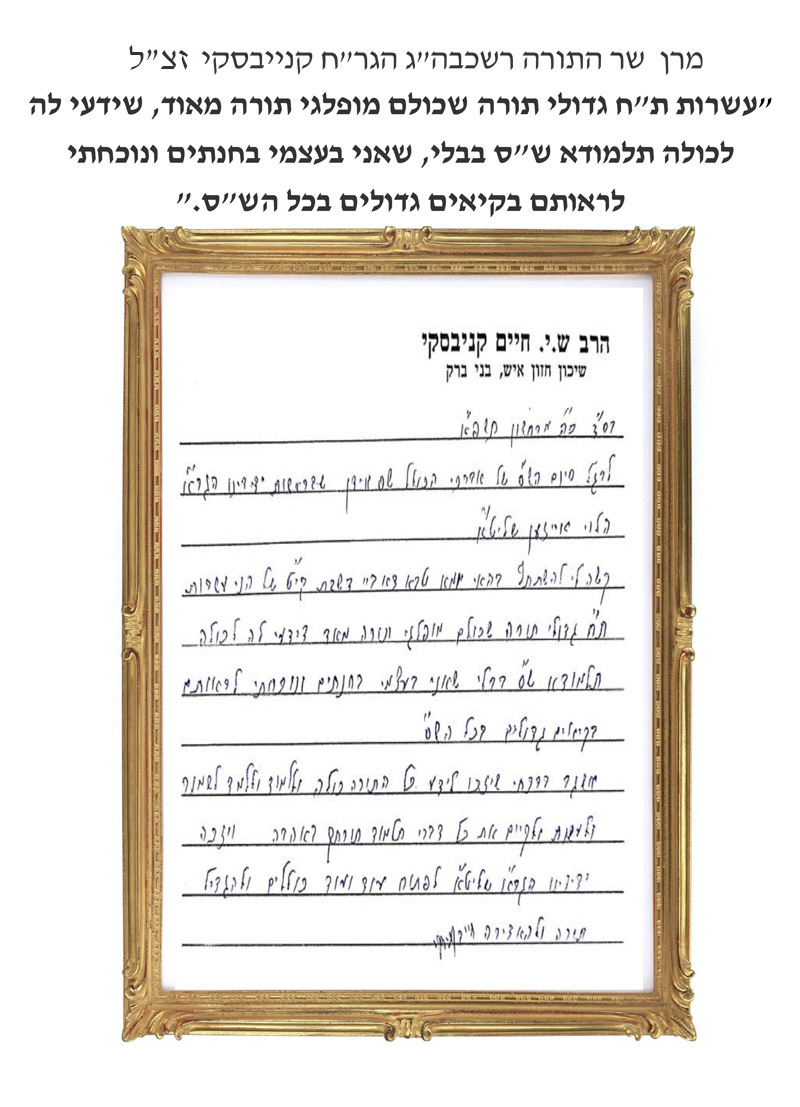 מרן שר התורה רשכבה״ג הגר״ח קנייבסקי זצ״ל
״עשרות ת״ח גדולי תורה שכולם מופלגי תורה מאוד, שידעי לה
לכולה תלמודא ש״ס בבלי, שאני בעצמי בחנתים ונוכחתי
לראותם בקיאים גדולים בכל הש״ס.״
הרב ש.י. חיים קניבסקי
שיכון חזון איש, בני ברק
בס"ד כ"ה מרחשון תשפ"א
לרגל סיום הש"ס של אברכי הכולל שבראשות ידידינו הגרא"מ
הלוי אייזען שליט"א
קשה לי להשתתף בהאי יומא טבא דאביי בשבת קי"ט של הני עשרות
ת"ח גדולי תורה שכולם מופלגי תורה מאד דידעי לה לכולה
תלמודא ש"ס בבלי שאני בעצמי בחנתים ונוכחתי לראותם
בקיאים גדולים בכל הש"ס
אשגר ברכתי שיזכו לידע כל התורה כולה, וללמוד וללמד לשמור
ולעשות ולקיים את כל דברי תלמוד תורתך באהבה ויזכה
ידידינו שליט"א לפתוח עוד ועוד כוללים ולהגדיל
תורה ולהאדירה